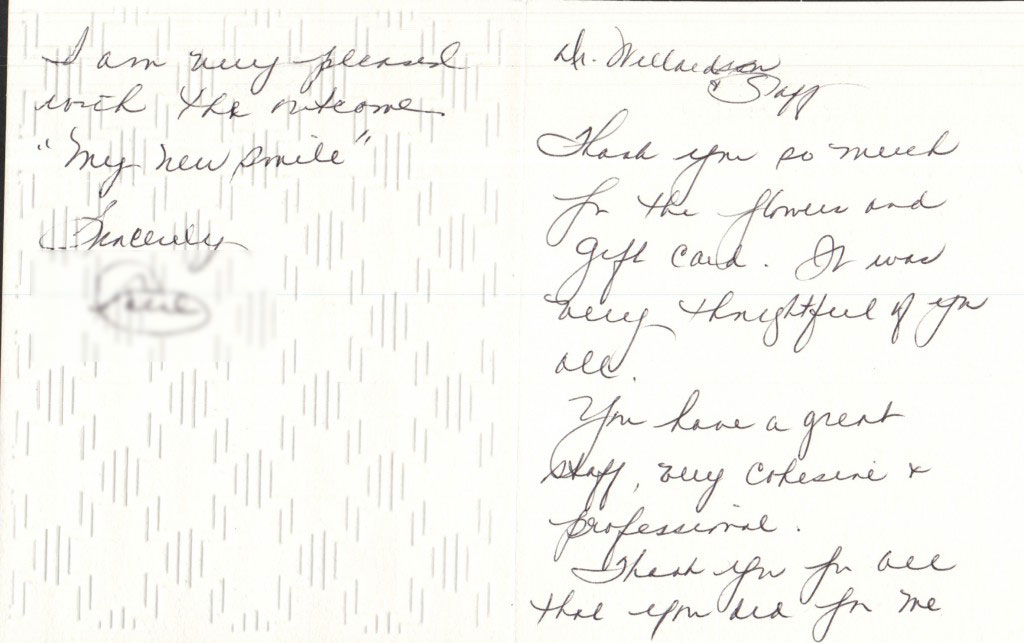 Dr. Willardson
& Staff
Thank you so much
for the flowers and
gift card. It was
very thoughtful of you
all.
You have a great
staff, very cohesive &
professional.
Thank you for all
that you did for me
I am very pleased
with the outcome
"My new smile"
Sincerely